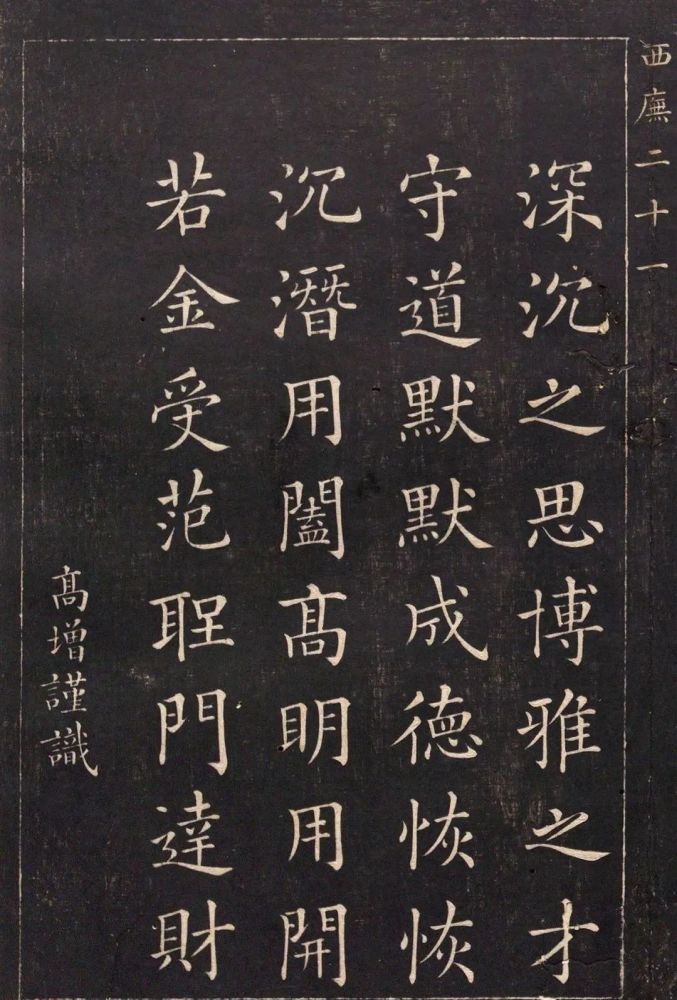 西廡二十一
深沉之思博雅之才
守道默默成德恢恢
沉潛用闔髙明用開
若金受范聖門達財
髙增謹識